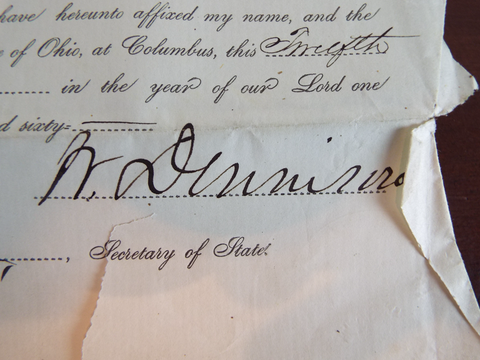 have hereunto affixed my name, and the
of Ohio, at Columbus, this Twelfth
in the year of our Lord one
sixty=
W. Dennison
, Secretary of State.